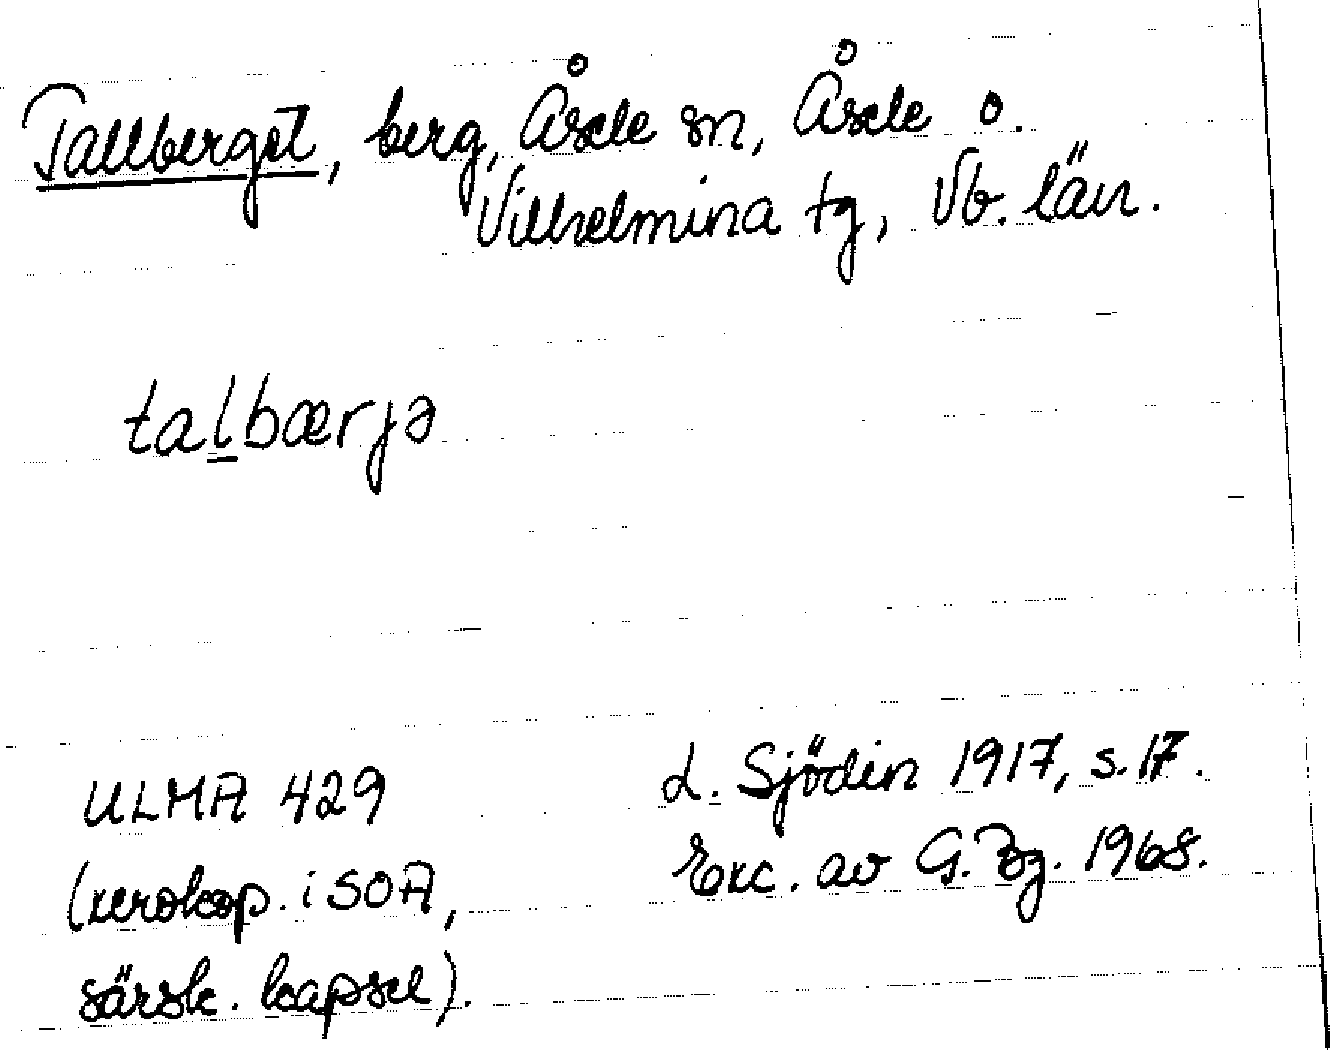 Tallberget, berg, Åsele sn, Åsele o.
Vilhelmina tg, Vb. län.
talbærjə
ULMA 429
(xerokop. i SOA,
särsk. kapsel).
L. Sjödin 1917, s. 17.
Exc. av G. Bg. 1968.